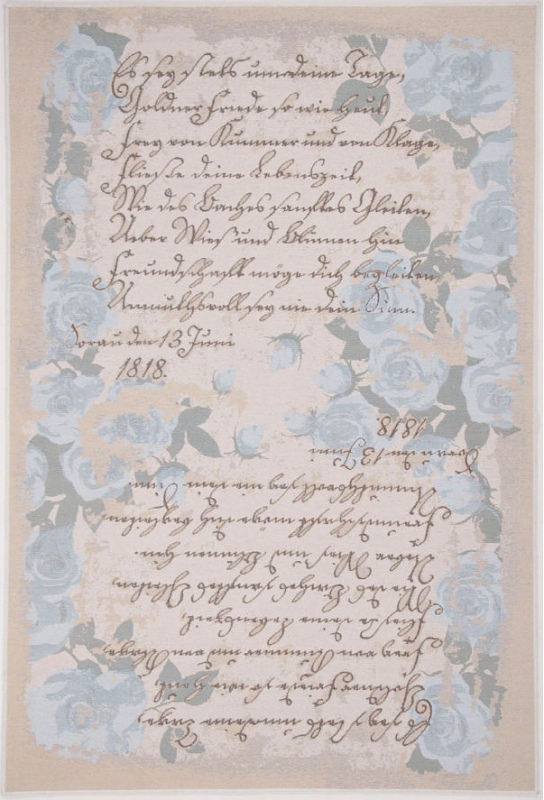 Es sey stets um deine Tage,
Goldner Friede so wie heut,
Frey von Kummer und von Klage,
Fließe deine Lebenszeit,
Wie des Baches sanftes Gleiten,
Ueber Wies und Blumen hin
Freundschaft möge dich begleiten
Anmuthsvoll sey nie dein Sinn.
Sorau den 13 Juni
1818.
1818
Sorau den 13 Juni
Anmuthsvoll sey nie dein Sinn
Freundschaft möge dich begleiten
Ueber Wies und Blumen hin.
Wie des Baches sanftes Gleiten
Fließe deine Lebenszeit
Frey von Kummer und von Klage
Goldner Friede so wie heut
Es sey stets um deine Tage